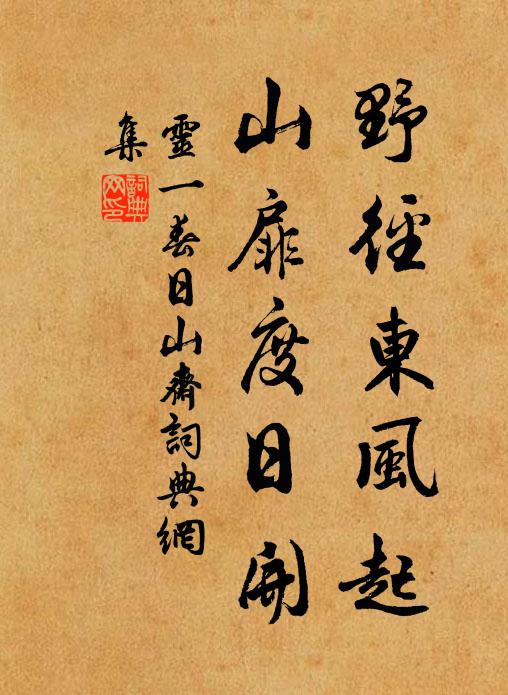 野徑東風起
山扉度日開
靈一春日山齋詞典網
集
詞典
网印